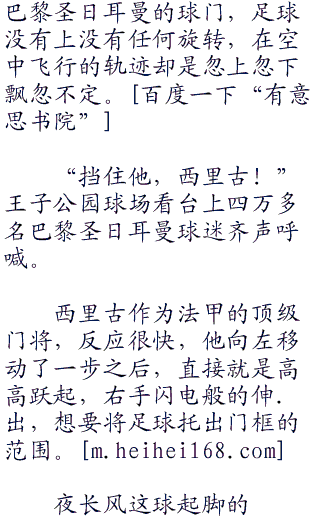 巴黎圣日耳曼的球门，足球
没有上没有任何旋转，在空
中飞行的轨迹却是忽上忽下
飘忽不定。[百度一下“有意
思书院”]
“挡住他，西里古！”
王子公园球场看台上四万多
名巴黎圣日耳曼球迷齐声呼
喊。
西里古作为法甲的顶级
门将，反应很快，他向左移
动了一步之后，直接就是高
高跃起，右手闪电般的伸.
出，想要将足球托出门框的
范围。[m.heihei168.com]
夜长风这球起脚的